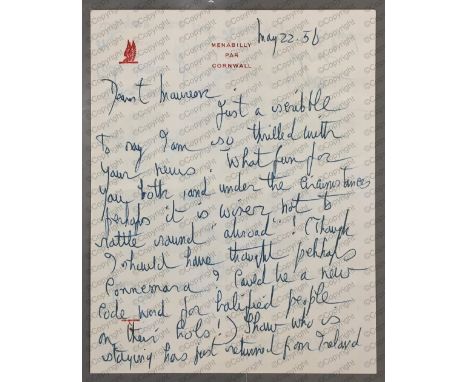 MENABILLY
PAR
CORNWALL
May 22. 56
Dearest Maureen
Just a scribble
To say I am so thrilled with
your news. What fun for
you both, and under the circumstances
perhaps it is wiser not to
rattle round "abroad"! (Though
I should have thought perhaps
Connemara! Could be a new
code word for people
on their hols!) Shaw who is
staying has just returned from Ireland
©Copyright